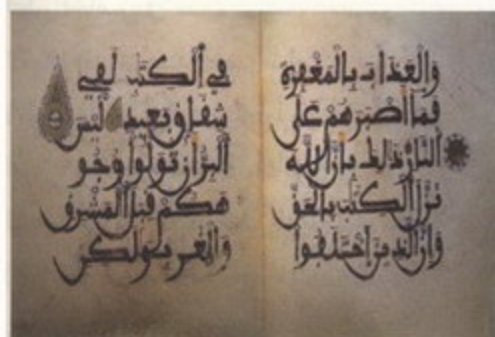 وَالْعَذَابَ بِالْمَغْفِرَةِ
فَمَا أَصْبَرَهُمْ عَلَى
النَّارِ ذَلِكَ بِأَنَّ اللَّهَ
نَزَّلَ الْكِتَبَ بِالْحَقِّ
وَإِنَّ الَّذِينَ اخْتَلَفُوا
فِي الْكِتَبِ لَفِي
شِقَاقٍ بَعِيدٍ لَيْسَ
الْبِرَّ أَن تُوَلُّوا وُجُو
هَكُمْ قِبَلَ الْمَشْرِقِ
وَالْمَغْرِبِ وَلَكِنِ